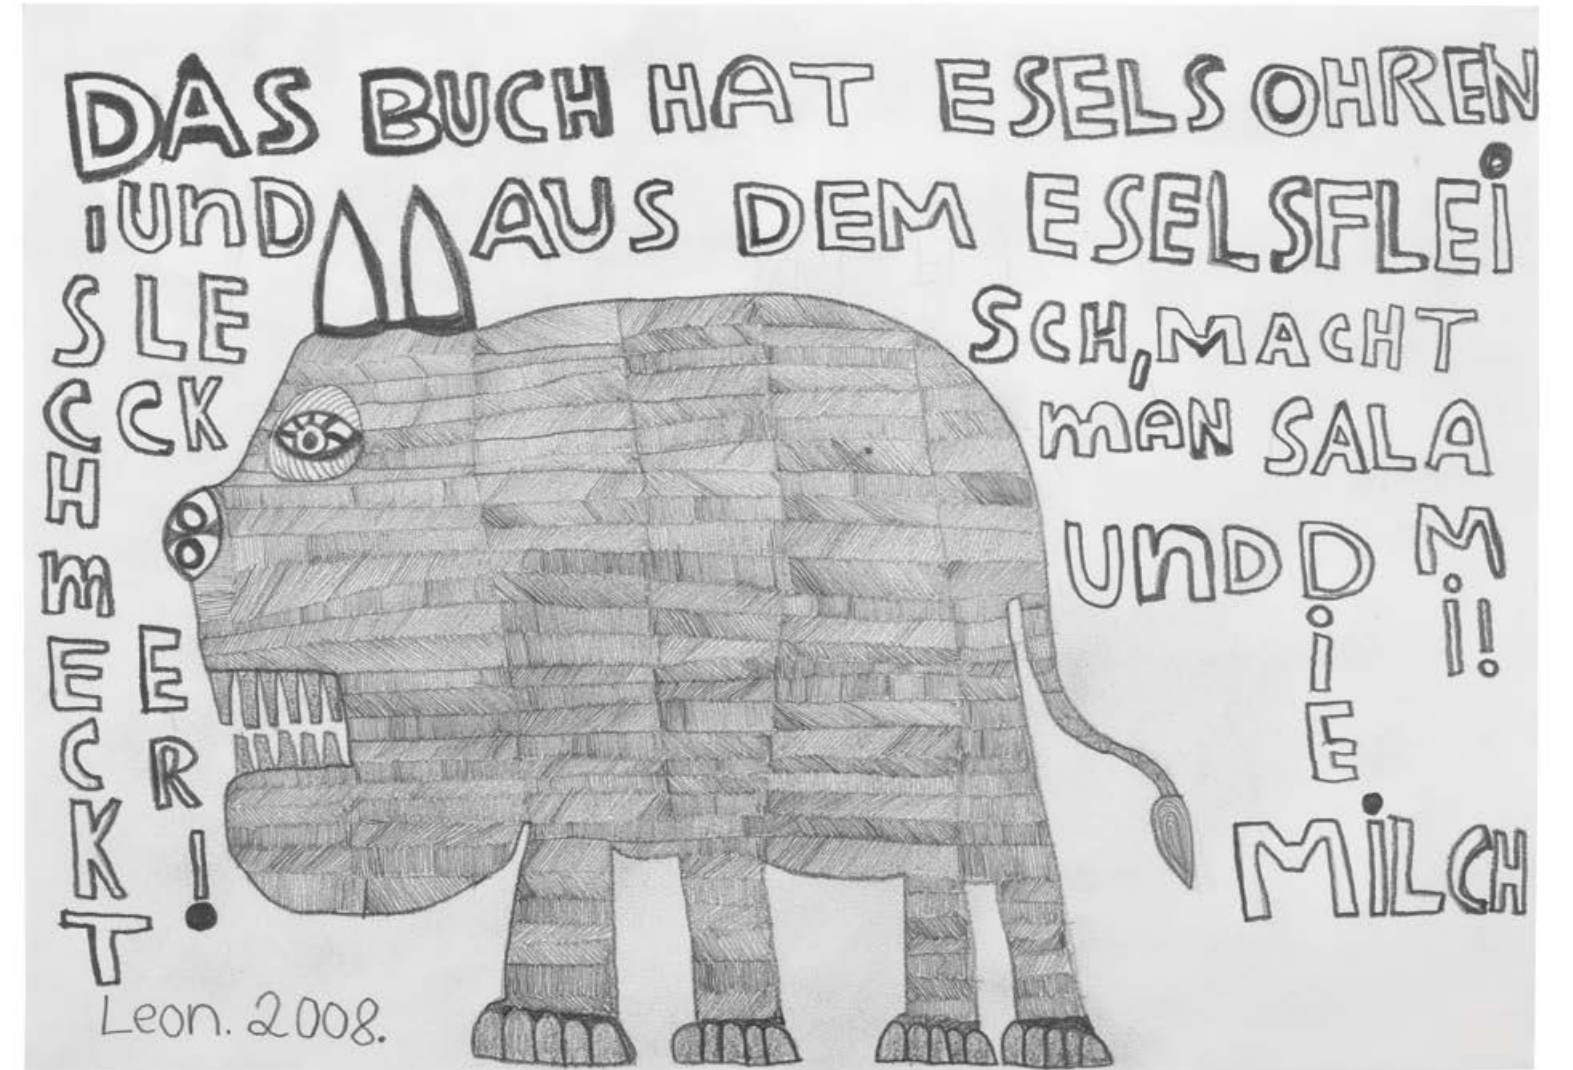 DAS BUCH HAT ESELSOHREN
UnD AUS DEM ESELSFLEi
SCH, MACHT
mAN SALA
Mi!
UnD DiE
MiLCH
iSCHmECKT
LECKER!
Leon. 2008.